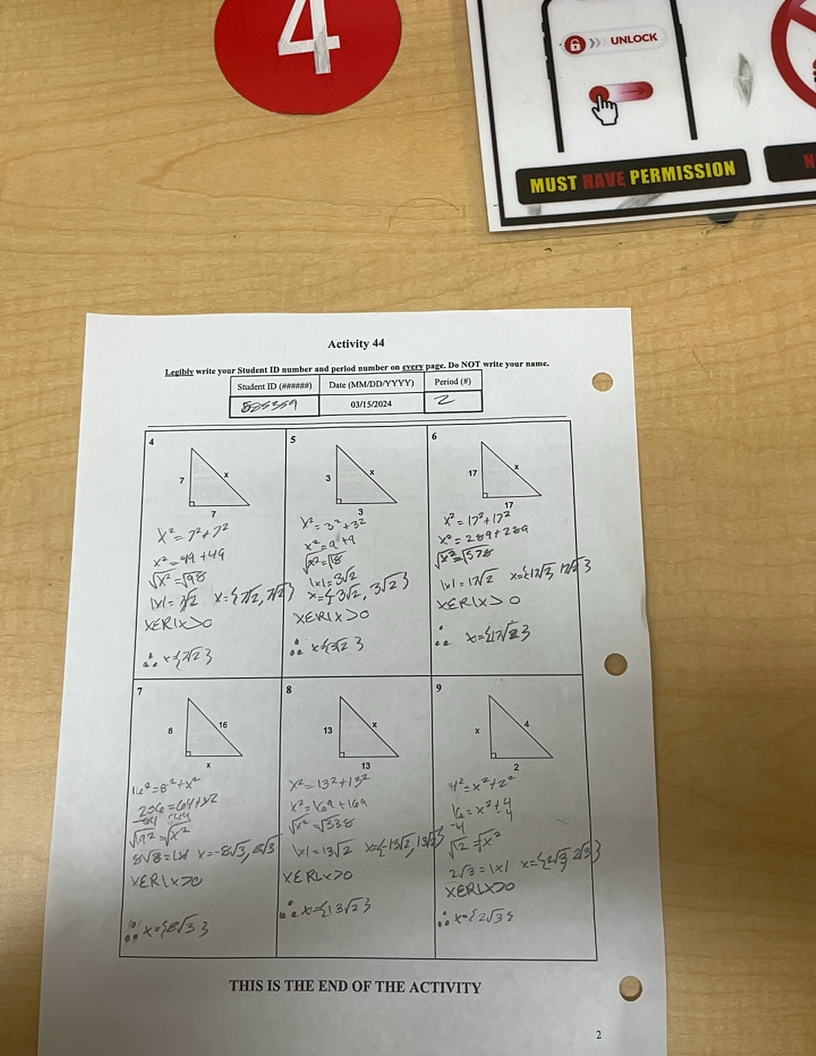 4
UNLOCK
MUST HAVE PERMISSION
Activity 44
Legibly write your Student ID number and period number on every page. Do NOT write your name.
Student ID (######) Date (MM/DD/YYYY) Period (#)
525359 03/15/2024 2
4
7
x
7
x² = 7² + 7²
x² = 49 + 49
√x² = √98
|x| = 7√2 x = {7√2, 7√2}
xεR|x>0
∴ x={7√2}
5
3
x
3
x² = 3² + 3²
x² = 9 + 9
√x² = √18
|x| = 3√2
x = {-3√2, 3√2}
xεR|x>0
∴ x{3√2}
6
17
x
17
x² = 17² + 17²
x² = 289 + 289
√x² = √578
|x| = 17√2
xεR|x>0
∴ x={17√2}
7
8
16
x
16² = 8² + x²
64 + x²
-64 -64
√x²
8√3 = |x| x = -8√3, 8√3
xεR|x>0
∴ x={8√3}
8
13
x
13
x² = 13² + 13²
x² = 169 + 169
√x² √338
|x| = 13√2 x={-13√2, 13√2}
xεR|x>0
∴ x={13√2}
9
x
4
2
4² = x² + 2²
16 = x² + 4
-4 -4
√12 = √x²
2√3 = |x| x={2√3, 2√3}
xεR|x>0
∴ x={2√3}
THIS IS THE END OF THE ACTIVITY
2